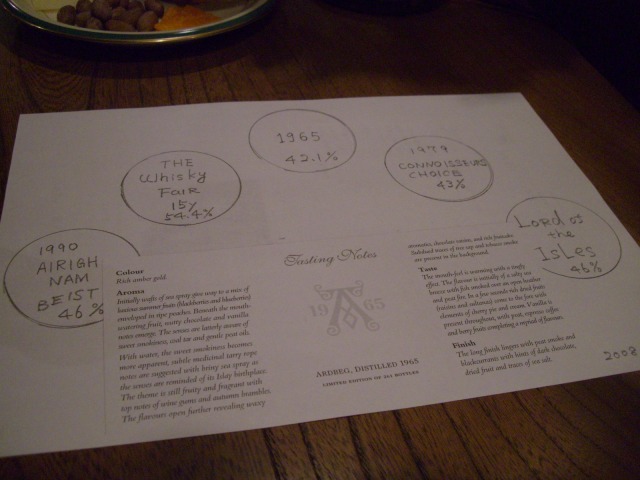 1965
42.1%
THE
Whisky
FAIR
15y
54.4%
1979
CONNOISSEURS
CHOICE
43%
1990
AIRIGH
NAM
BEIST
46%
LORD of
the
ISLES
46%
Colour
Rich amber gold.
Aroma
Initially wafts of sea spray give way to a mix of
luscious summer fruit (blackberries and blueberries)
enveloped in ripe peaches. Beneath the mouth-
watering fruit, nutty chocolate and vanilla
notes emerge. The senses are latterly aware of
sweet smokiness, coal tar and gentle peat oils.
With water, the sweet smokiness becomes
more apparent; subtle medicinal tarry rope
notes are suggested with briny sea spray as
the senses are reminded of its Islay birthplace.
The theme is still fruity and fragrant with
top notes of wine gums and autumn brambles.
The flavours open further revealing waxy
Tasting Notes
19 A 65
ARDBEG, DISTILLED 1965
LIMITED EDITION OF 261 BOTTLES
aromatics, chocolate raisins, and rich fruitcake.
Subdued traces of tree sap and tobacco smoke
are present in the background.
Taste
The mouthfeel is warming with a tingly
effect. The flavour is initially of a salty sea
breeze with fish smoked over an open heather
and peat fire. In a few seconds rich dried fruits
(raisins and sultanas) come to the fore with
elements of sherry pie and cream. Vanilla is
present throughout, with peat, espresso coffee
and berry fruits completing a myriad of flavours.
Finish
The long finish lingers with peat smoke and
blackcurrants with hints of dark chocolate,
dried fruit and traces of sea salt.
2008